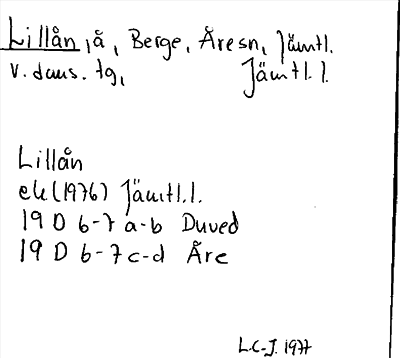 Lillån, å, Berge, Åre sn, Jämtl.
v. daus. tg, Jämtl. l.
Lillån
ek (1976) Jämtl.l.
19 D 6-7 a-b Duved
19 D 6-7 c-d Åre
L.C-J. 1977